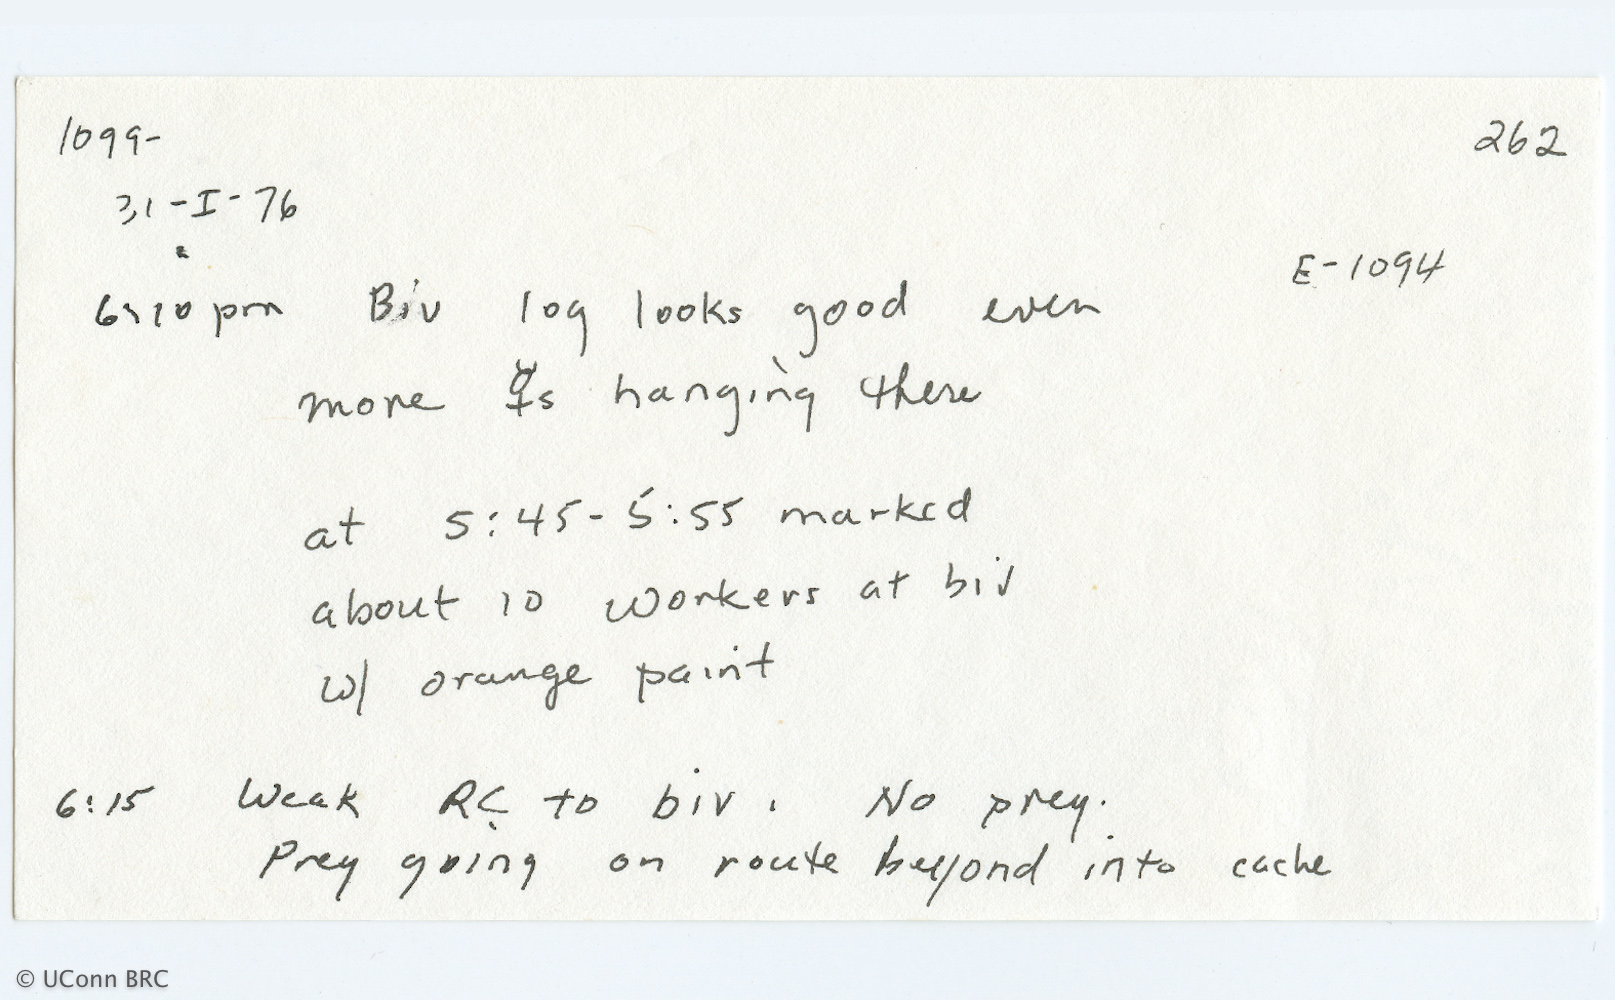 1099-
262
31-I-76
E-1094
6:10 pm Biv log looks good even
more ☿s hanging there
at 5:45-5:55 marked
about 10 workers at biv
w/ orange paint
6:15 Weak RC to biv. No prey.
Prey going on route beyond into cache
© UConn BRC